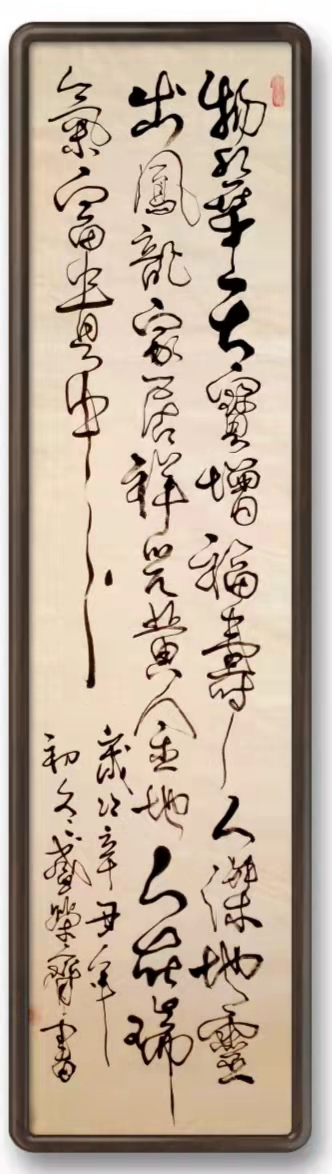 物華天寶增福壽人傑地靈
出鳳龍家居祥光黄金地人在瑞
氣富貴中
歲次辛丑年
初冬盛書